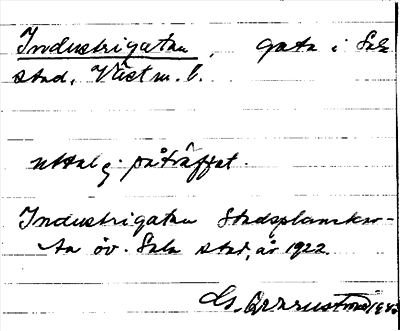 Industrigatan, gata i Sala
stad, Västm. l.
Uttal ej påträffat.
Industrigatan Stadsplanekar-
ta öv. Sala stad, år 1922.